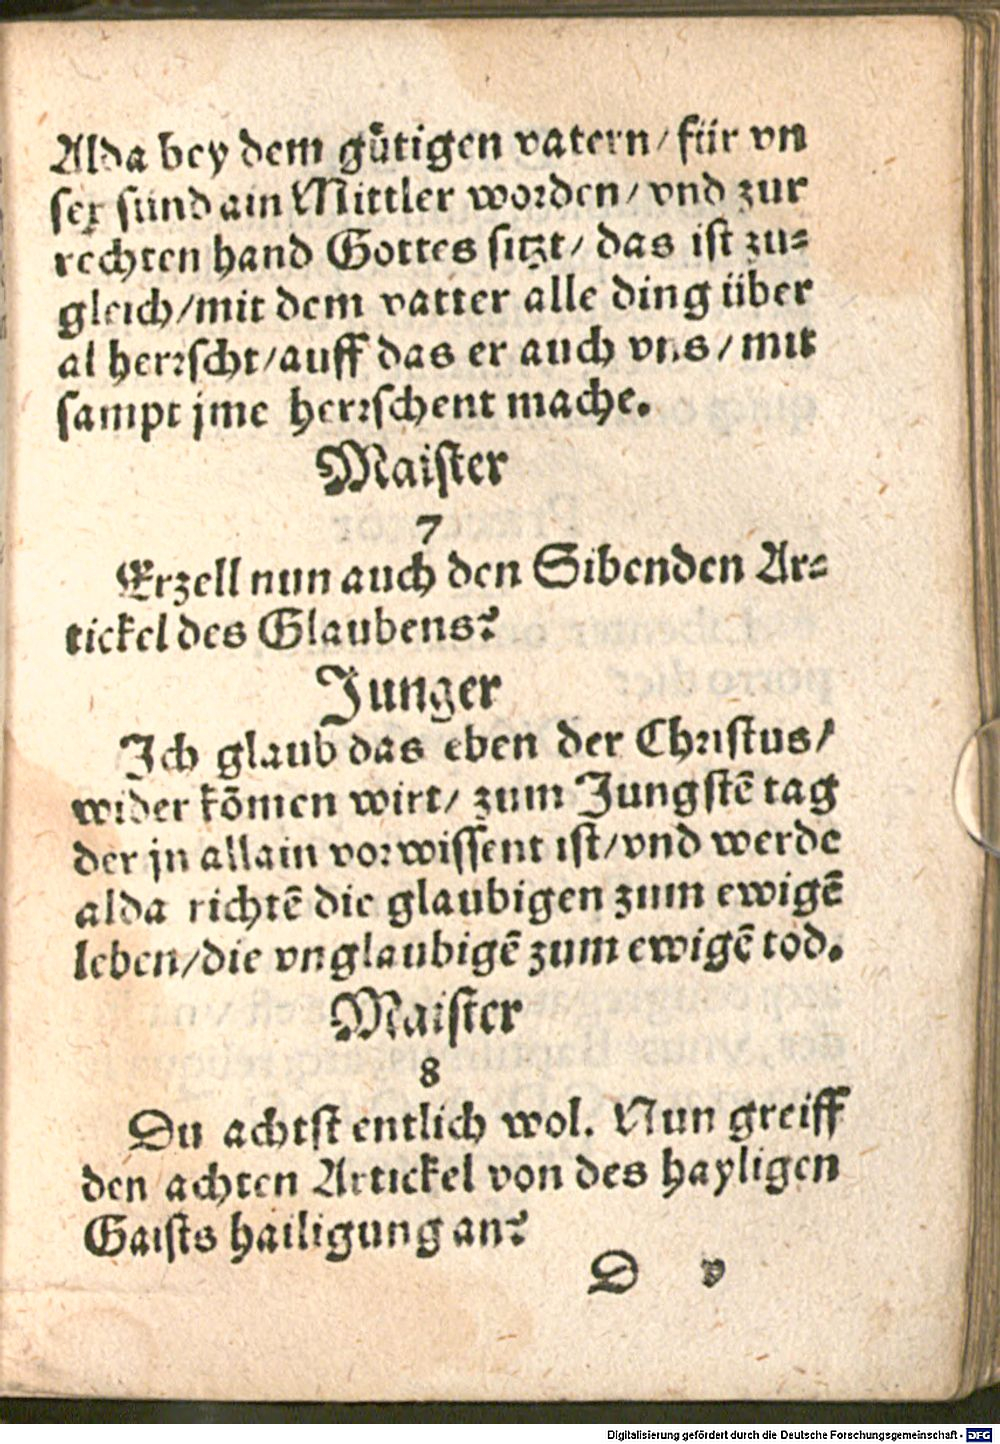 Alda bey dem guͤtigen vatern/ für vn
ser sünd ain Mittler worden/ vnd zur
rechten hand Gottes sitzt/ das ist zu⸗
gleich/mit dem vatter alle ding über
al herrscht/auff das er auch vns/ mit
sampt jme herrschent mache.
Maister
7
Erzell nun auch den Sibenden Ar⸗
tickel des Glaubens?
Junger
Ich glaub das eben der Christus/
wider kōmen wirt/ zum Jungstē tag
der jn allain vorwissent ist/vnd werde
alda richtē die glaubigen zum ewigē
leben/die vnglaubigē zum ewigē tod.
Maister
8
Du achtst entlich wol. Nun greiff
den achten Artickel von des hayligen
Gaists hailigung an?
D v
Digitalisierung gefördert durch die Deutsche Forschungsgemeinschaft - DFG